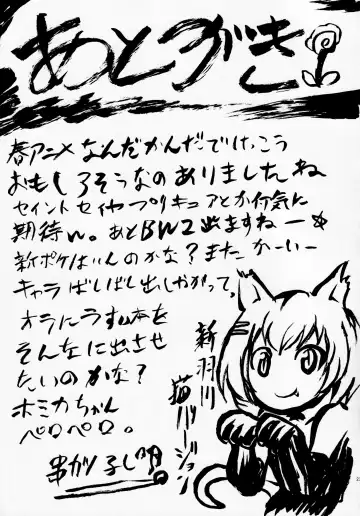 あとがき
春アニメなんだかんだでけっこう
おもしろそうなのありましたね
セイントセイヤプリキュアとか行気に
期待w。あとBW2出ますねー☆
新ポケはいんのかな？またかーいー
キャラばしばし出しやがって。
オラにうす本を
そんなに出させ
たいのかな？
ホミカちゃん
ペロペロ。
串かつ
新羽川
猫バージョン